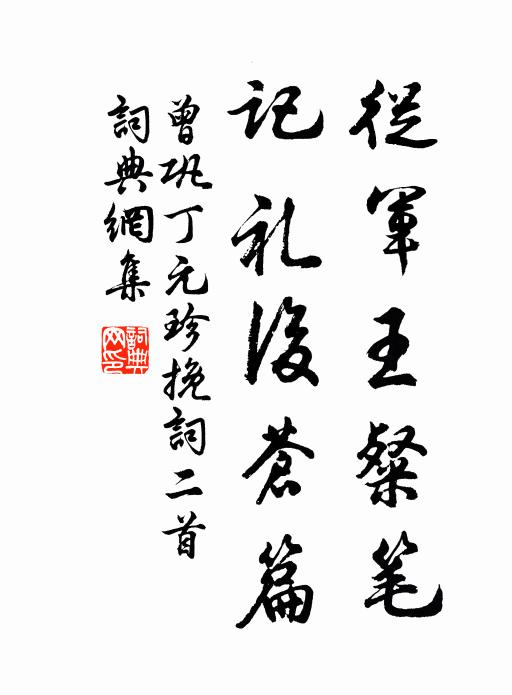 從軍王粲笔
记礼後蒼篇
曾巩丁元珍挽詞二首
詞典網集
詞典网印